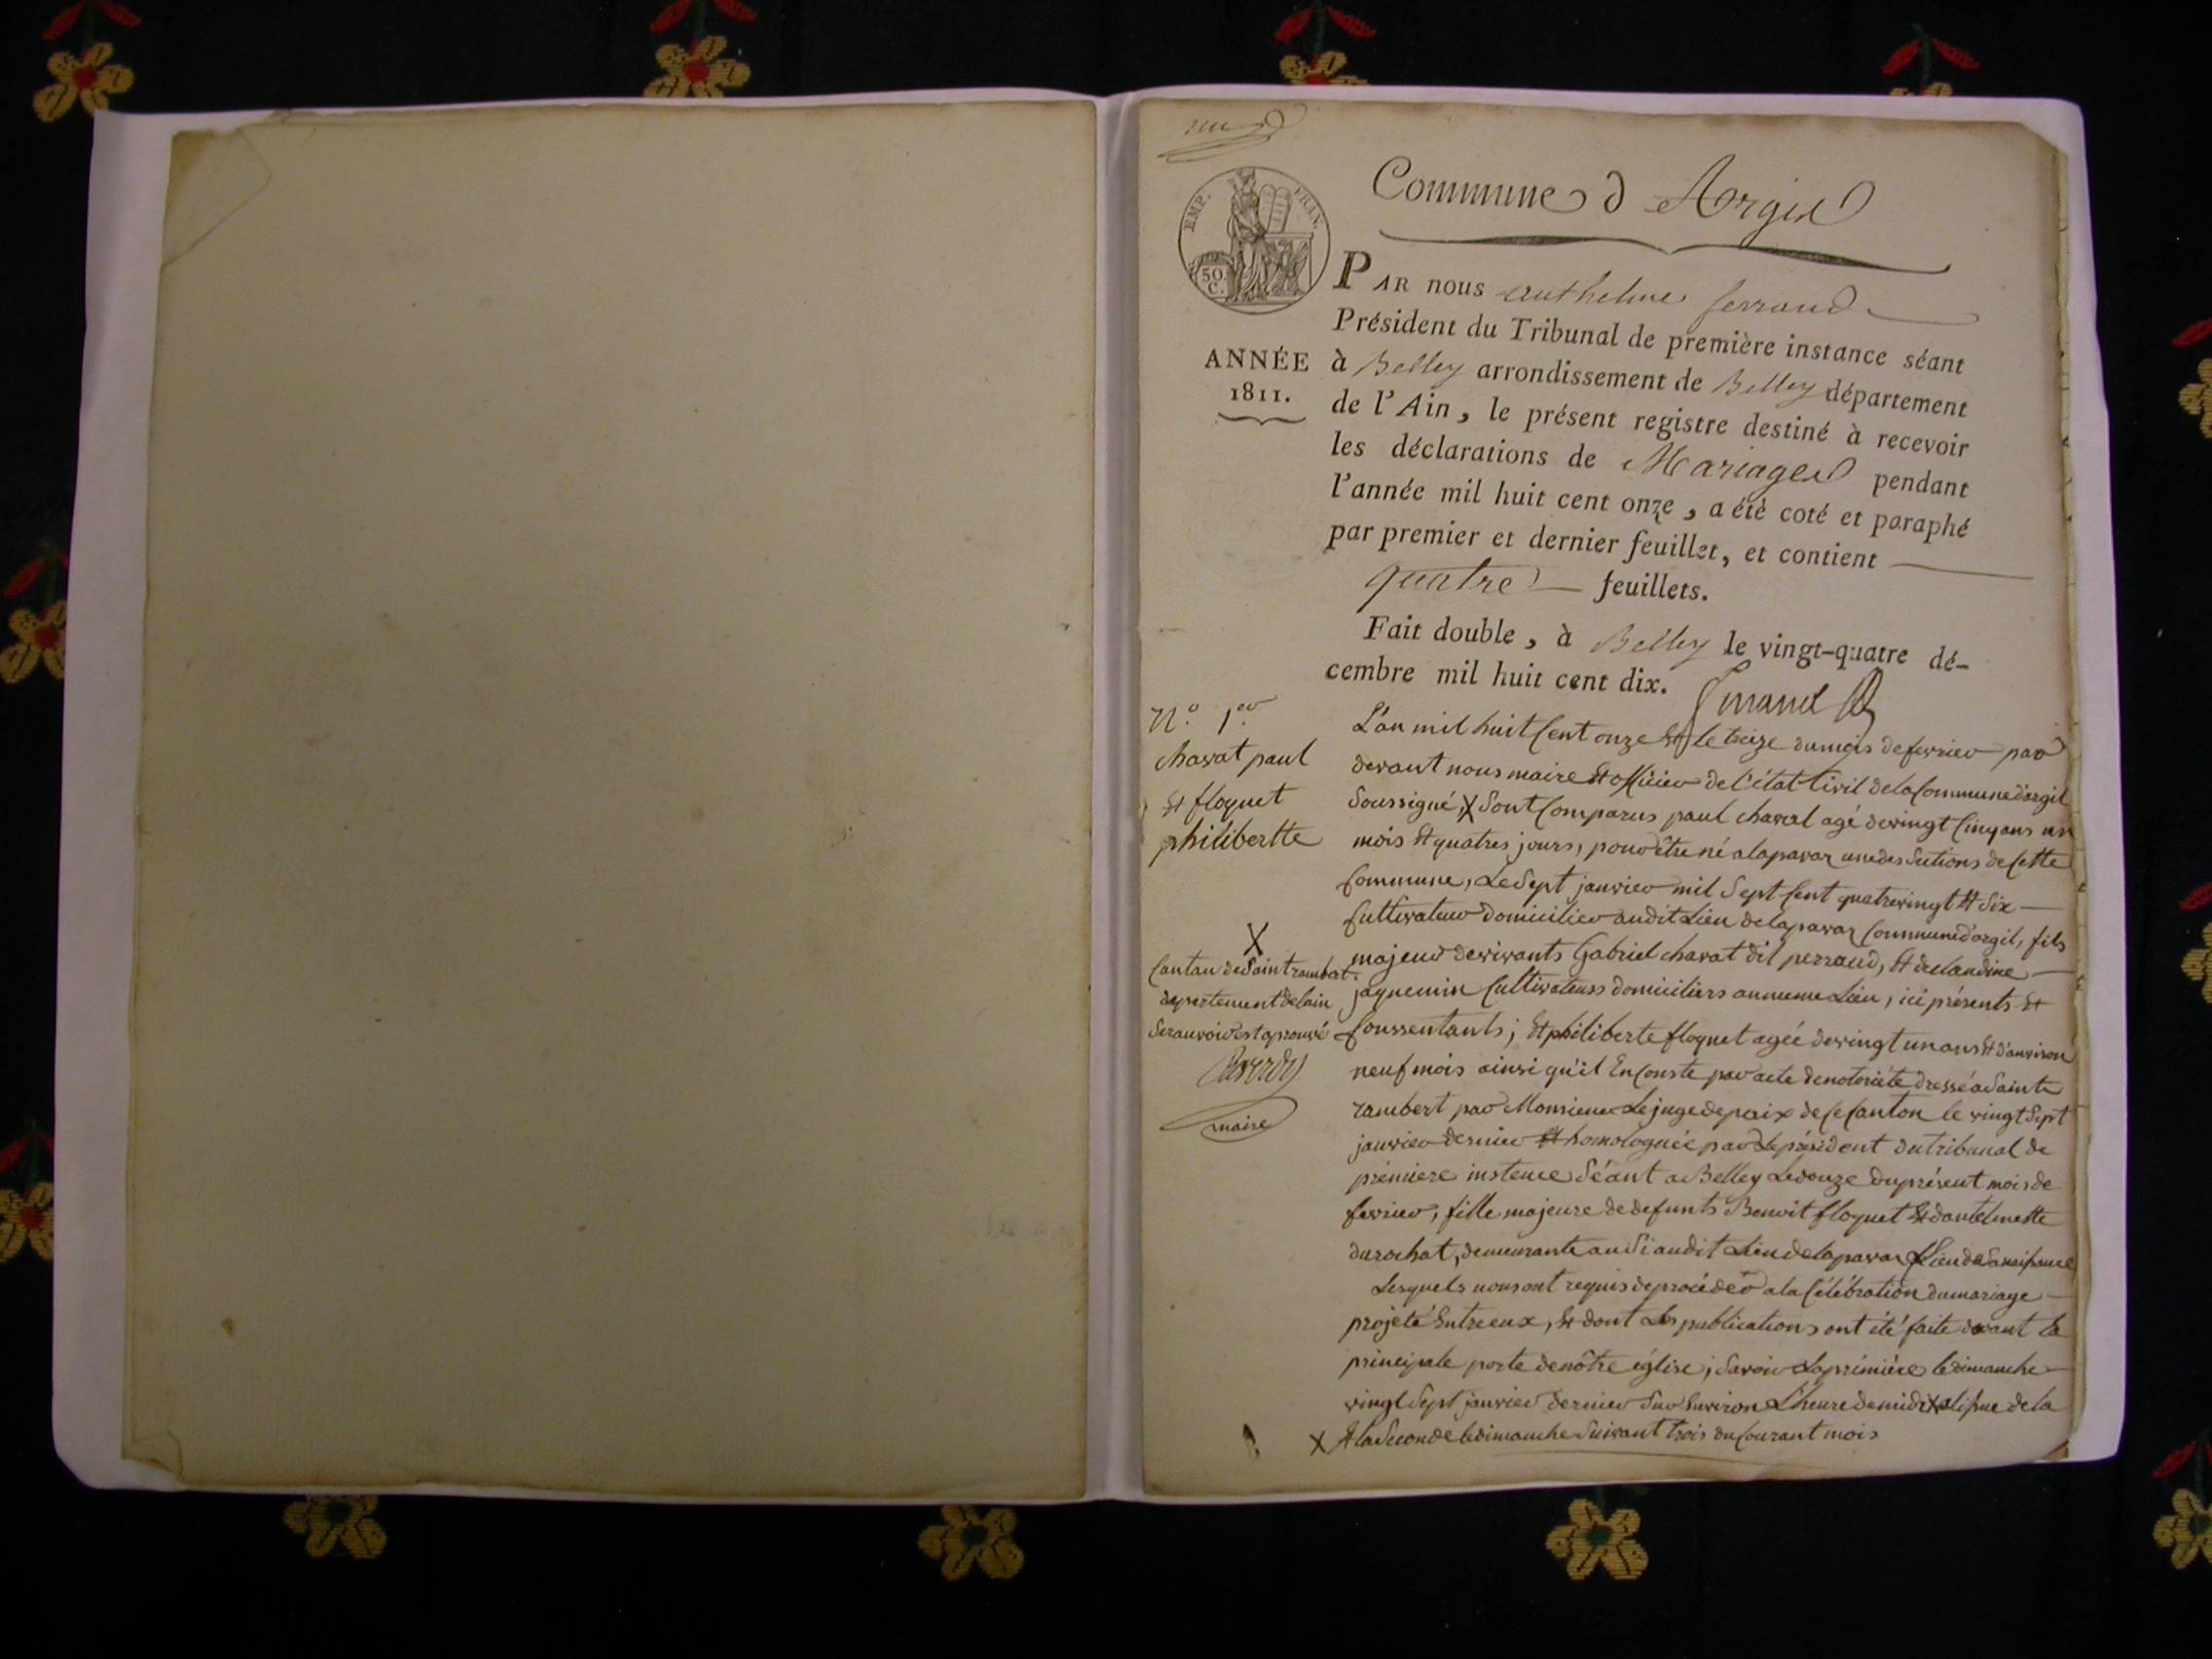 EMP. FRAN.
50
C.
Commune d'Argis
PAR nous anthelme ferrand
Président du Tribunal de première instance séant
ANNÉE
1811.
à Belley arrondissement de Belley département
de l'Ain, le présent registre destiné à recevoir
les déclarations de Mariages pendant
l'année mil huit cent onze, a été coté et paraphé
par premier et dernier feuillet, et contient
quatre feuillets.
Fait double, à Belley le vingt-quatre dé-
cembre mil huit cent dix.
ferrand
N.º 1er
chavat paul
et floquet
philibertte
L'an mil huit Cent onze Et le treize du mois de fevrier par
devant nous maire Et officier de l'état Civil de la Commune d'argil
Soussigné, X Sont Comparus paul chavat agé de vingt Cinq ans un
mois Et quatres jours, pour être né a laparaz une des Sections de Cette
Commune, Le Sept janvier mil Sept Cent quatrevingt Et Six
Cultivateur domicilier audit Lieu de laparaz Commune d'argil, fils
majeur de vivants Gabriel chavat dit perraud, Et de claudine
jaquemin Cultivateurs domiciliers au meme Lieu, ici présents Et
Conssentants; Et philiberte floquet agée de vingt un ans Et d'anviron
neuf mois ainsi qu'il En Conste par acte de notoriété dressé a Saint
rambert par Monsieur Le juge de paix de Ce Canton le vingt Sept
janvier dernier Et homologuée par Le président du tribunal de
prémiere instence Séant a Belley Le douze du présent mois de
fevrier, fille majeure de defunts Benoit floquet Et d'antelmette
durochat, demeurante ausi audit Lieu de laparaz Lieu de Sa naissance
Lesquels nous ont requis de procéder a la Célébration du mariage
projeté Entre eux, Et dont Les publications ont été faite devant la
principale porte de nôtre église; Savoir La prémiére le dimanche
vingt Sept janvier dernier Sur Environ L'heure de midi X a l'issue de la
X Et la Seconde le dimanche Suivant trois du Courant mois
X
Canton de Saint rambert
departement de lain
Le ranvoi est aprouvé
maire